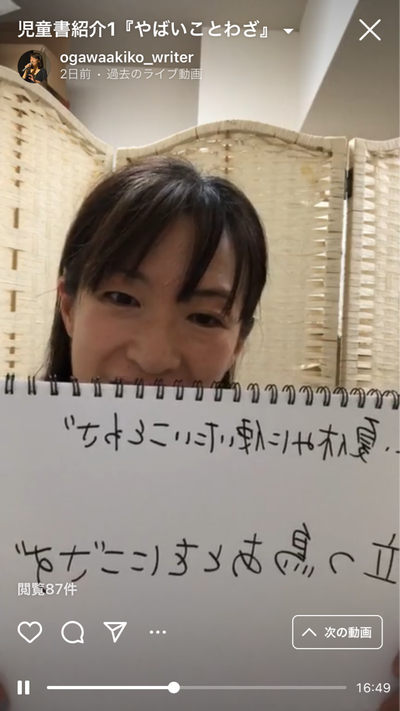 児童書紹介1『やばいことわざ』
ogawaakiko_writer
2日前・過去のライブ動画
…夏休みに使いたいことわざ
立つ鳥あとをにごさず
閲覧87件
次の動画
16:49